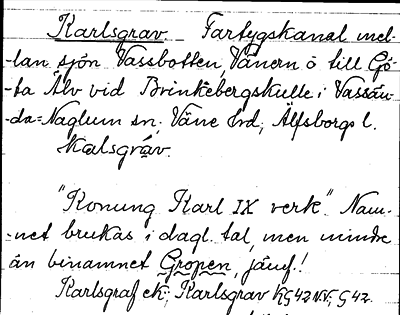 Karlsgrav Fartygskanal mel-
-lan sjön Vassbotten, Vänern o till Gö-
-ta Älv vid Brinkebergskulle i Vassän-
-da=Naglum sn; Väne hd; Älfsborgs l.
Kalsgrav.
"Konung Karl IX verk". Nam-
-net brukas i dagl. tal, men mindre
än binamnet Gropen, jämf.!
Karlsgraf ek; Karlsgrav KG42NV; G42.